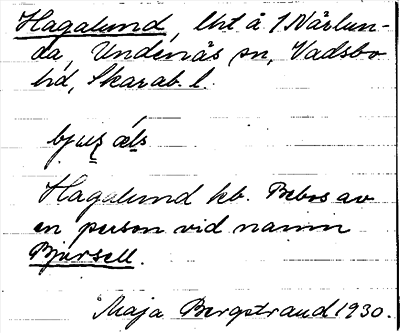 Hagalund, lht å 1 Närlun-
da, Undenäs sn, Vadsbo
hd, Skarab. l.
Hagalund kb. Bebos av
en person vid namn
Bjursell.
Maja Bergstrand 1930.